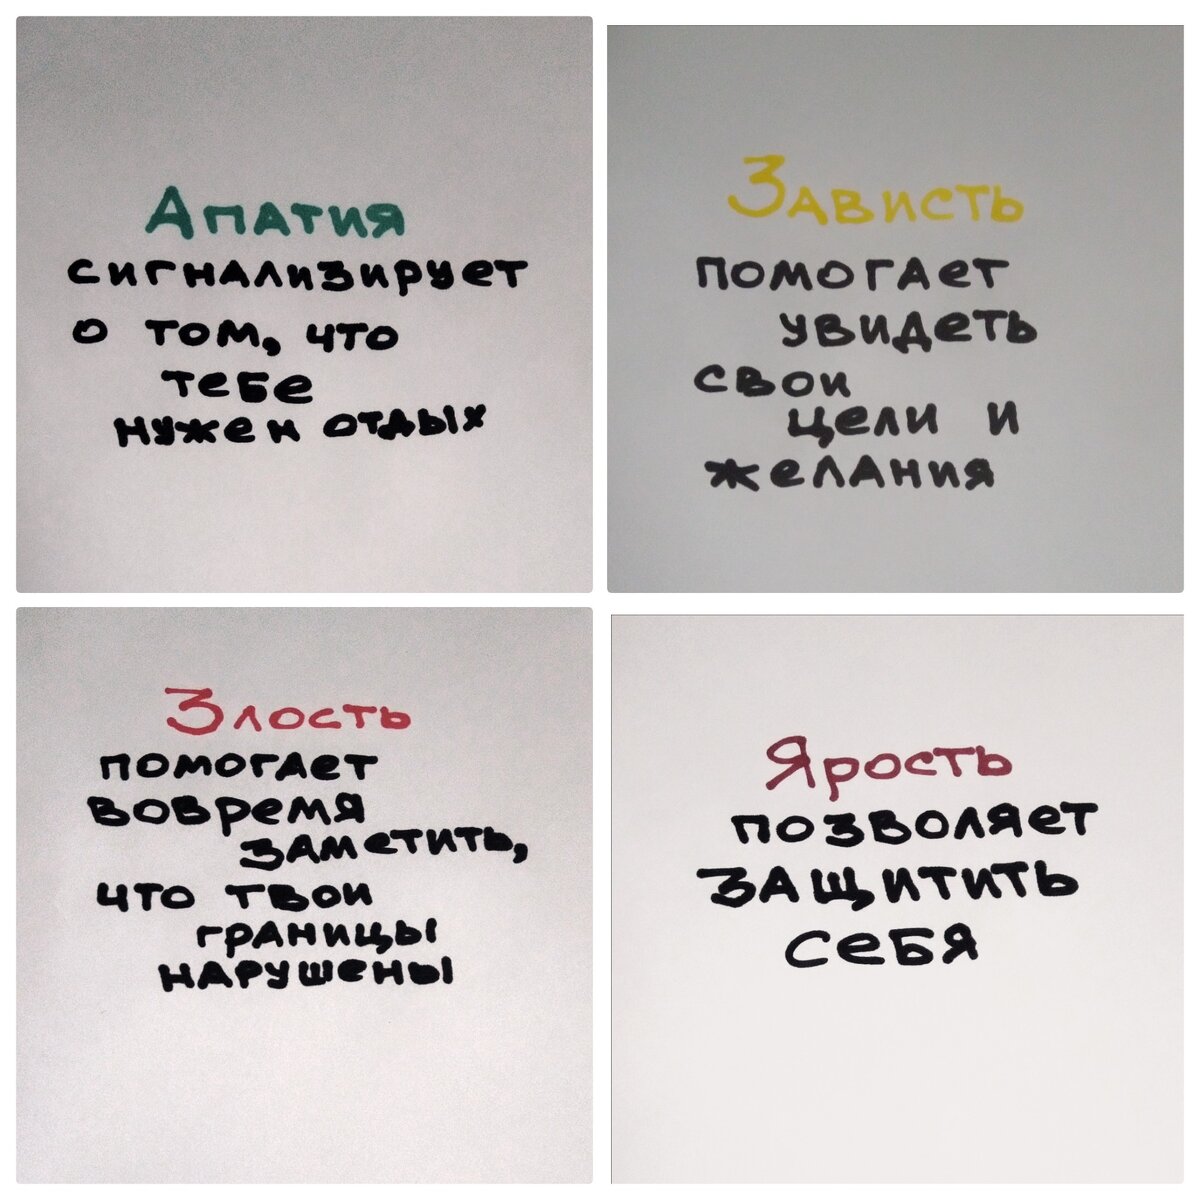 Апатия
сигнализирует
о том, что
тебе
нужен отдых
Зависть
помогает
увидеть
свои
цели и
желания
Злость
помогает
вовремя
заметить,
что твои
границы
нарушены
Ярость
позволяет
защитить
себя